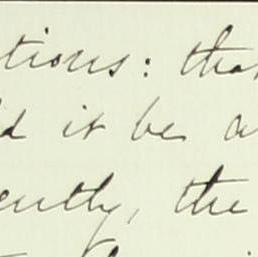 tions: that
ld it be a
ently, the